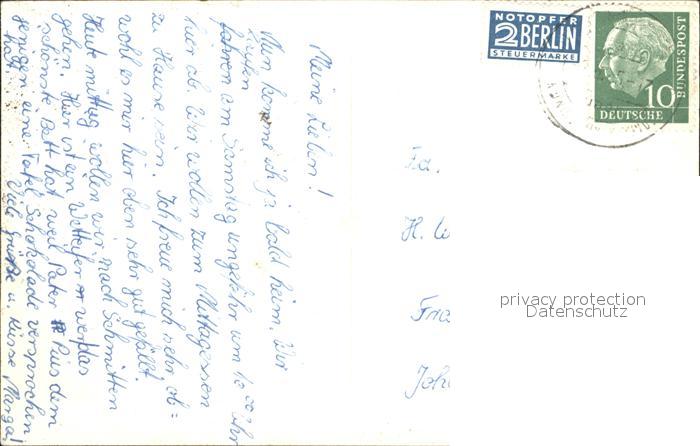 Meine Lieben!
Nun komme ich ja bald heim. Wir
fahren am Samstag ungefähr um 10 00 Uhr
hier ab. Wir wollen zum Mittagessen
zu Hause sein. Ich freue mich sehr, ob=
wohl es mir hier oben sehr gut gefällt.
Heute mittag wollen wir nach Schmitten
gehen. Hier ist ein Wetteifer wer das
schönste Bett hat weil Pater Pius dem
jenigen eine Tafel Schokolade versprochen
hat. Viele Grüße u. Küsse Margal
NOTOPFER
2 BERLIN
STEUERMARKE
10
DEUTSCHE
BUNDESPOST
Fa.
H.
privacy protection
Datenschutz